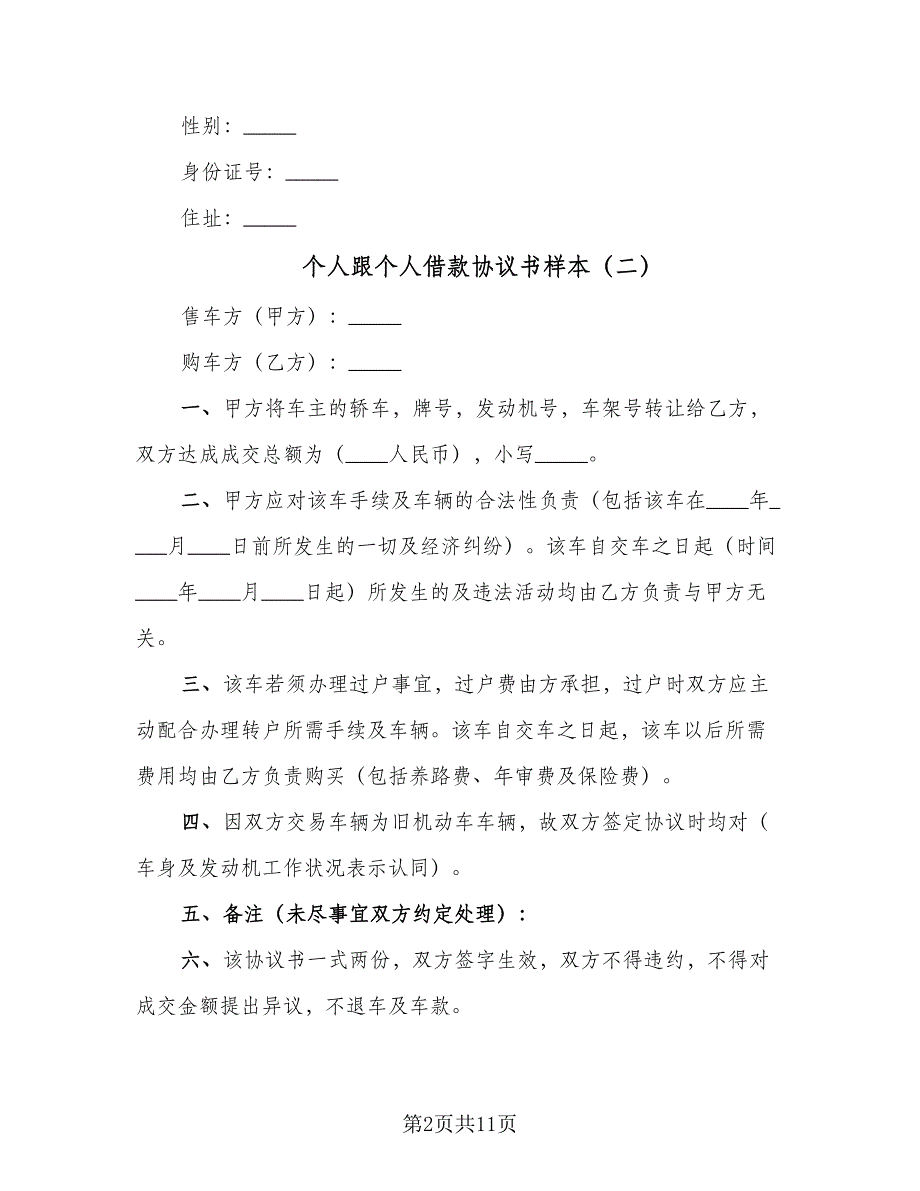 性别：_____
身份证号：_____
住址：_____
个人跟个人借款协议书样本（二）
售车方（甲方）：_____
购车方（乙方）：_____
一、甲方将车主的轿车，牌号，发动机号，车架号转让给乙方，
双方达成成交总额为（____人民币），小写_____。
二、甲方应对该车手续及车辆的合法性负责（包括该车在____年_
___月____日前所发生的一切及经济纠纷）。该车自交车之日起（时间
____年____月____日起）所发生的及违法活动均由乙方负责与甲方无
关。
三、该车若须办理过户事宜，过户费由方承担，过户时双方应主
动配合办理转户所需手续及车辆。该车自交车之日起，该车以后所需
费用均由乙方负责购买（包括养路费、年审费及保险费）。
四、因双方交易车辆为旧机动车车辆，故双方签定协议时均对（
车身及发动机工作状况表示认同）。
五、备注（未尽事宜双方约定处理）：
六、该协议书一式两份，双方签字生效，双方不得违约，不得对
成交金额提出异议，不退车及车款。
第2页共11页